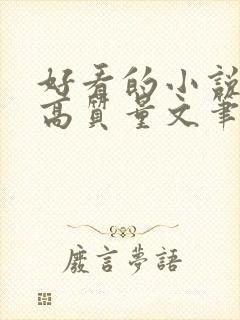 好看的小說
高質量文筆
廢言夢語